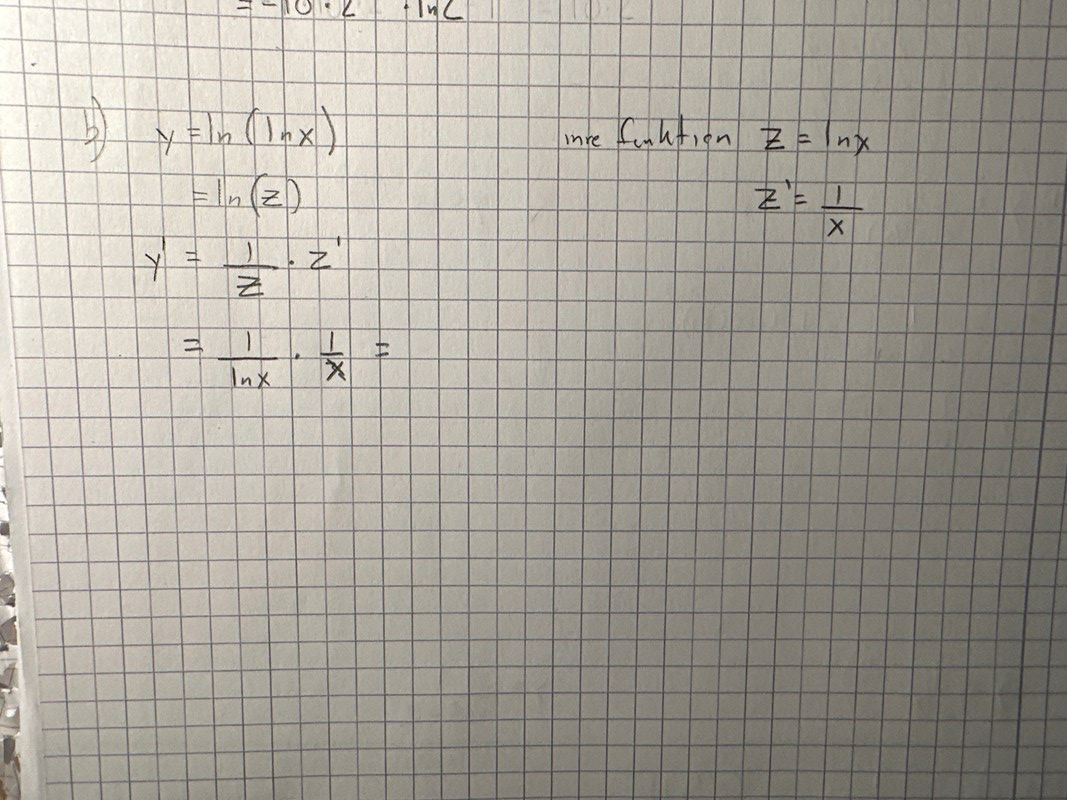 = -10 · 2 · ln2
b) y = ln(lnx) inre funktion z = lnx
= ln(z) z' = 1/x
y' = 1/z · z'
= 1/lnx · 1/x =